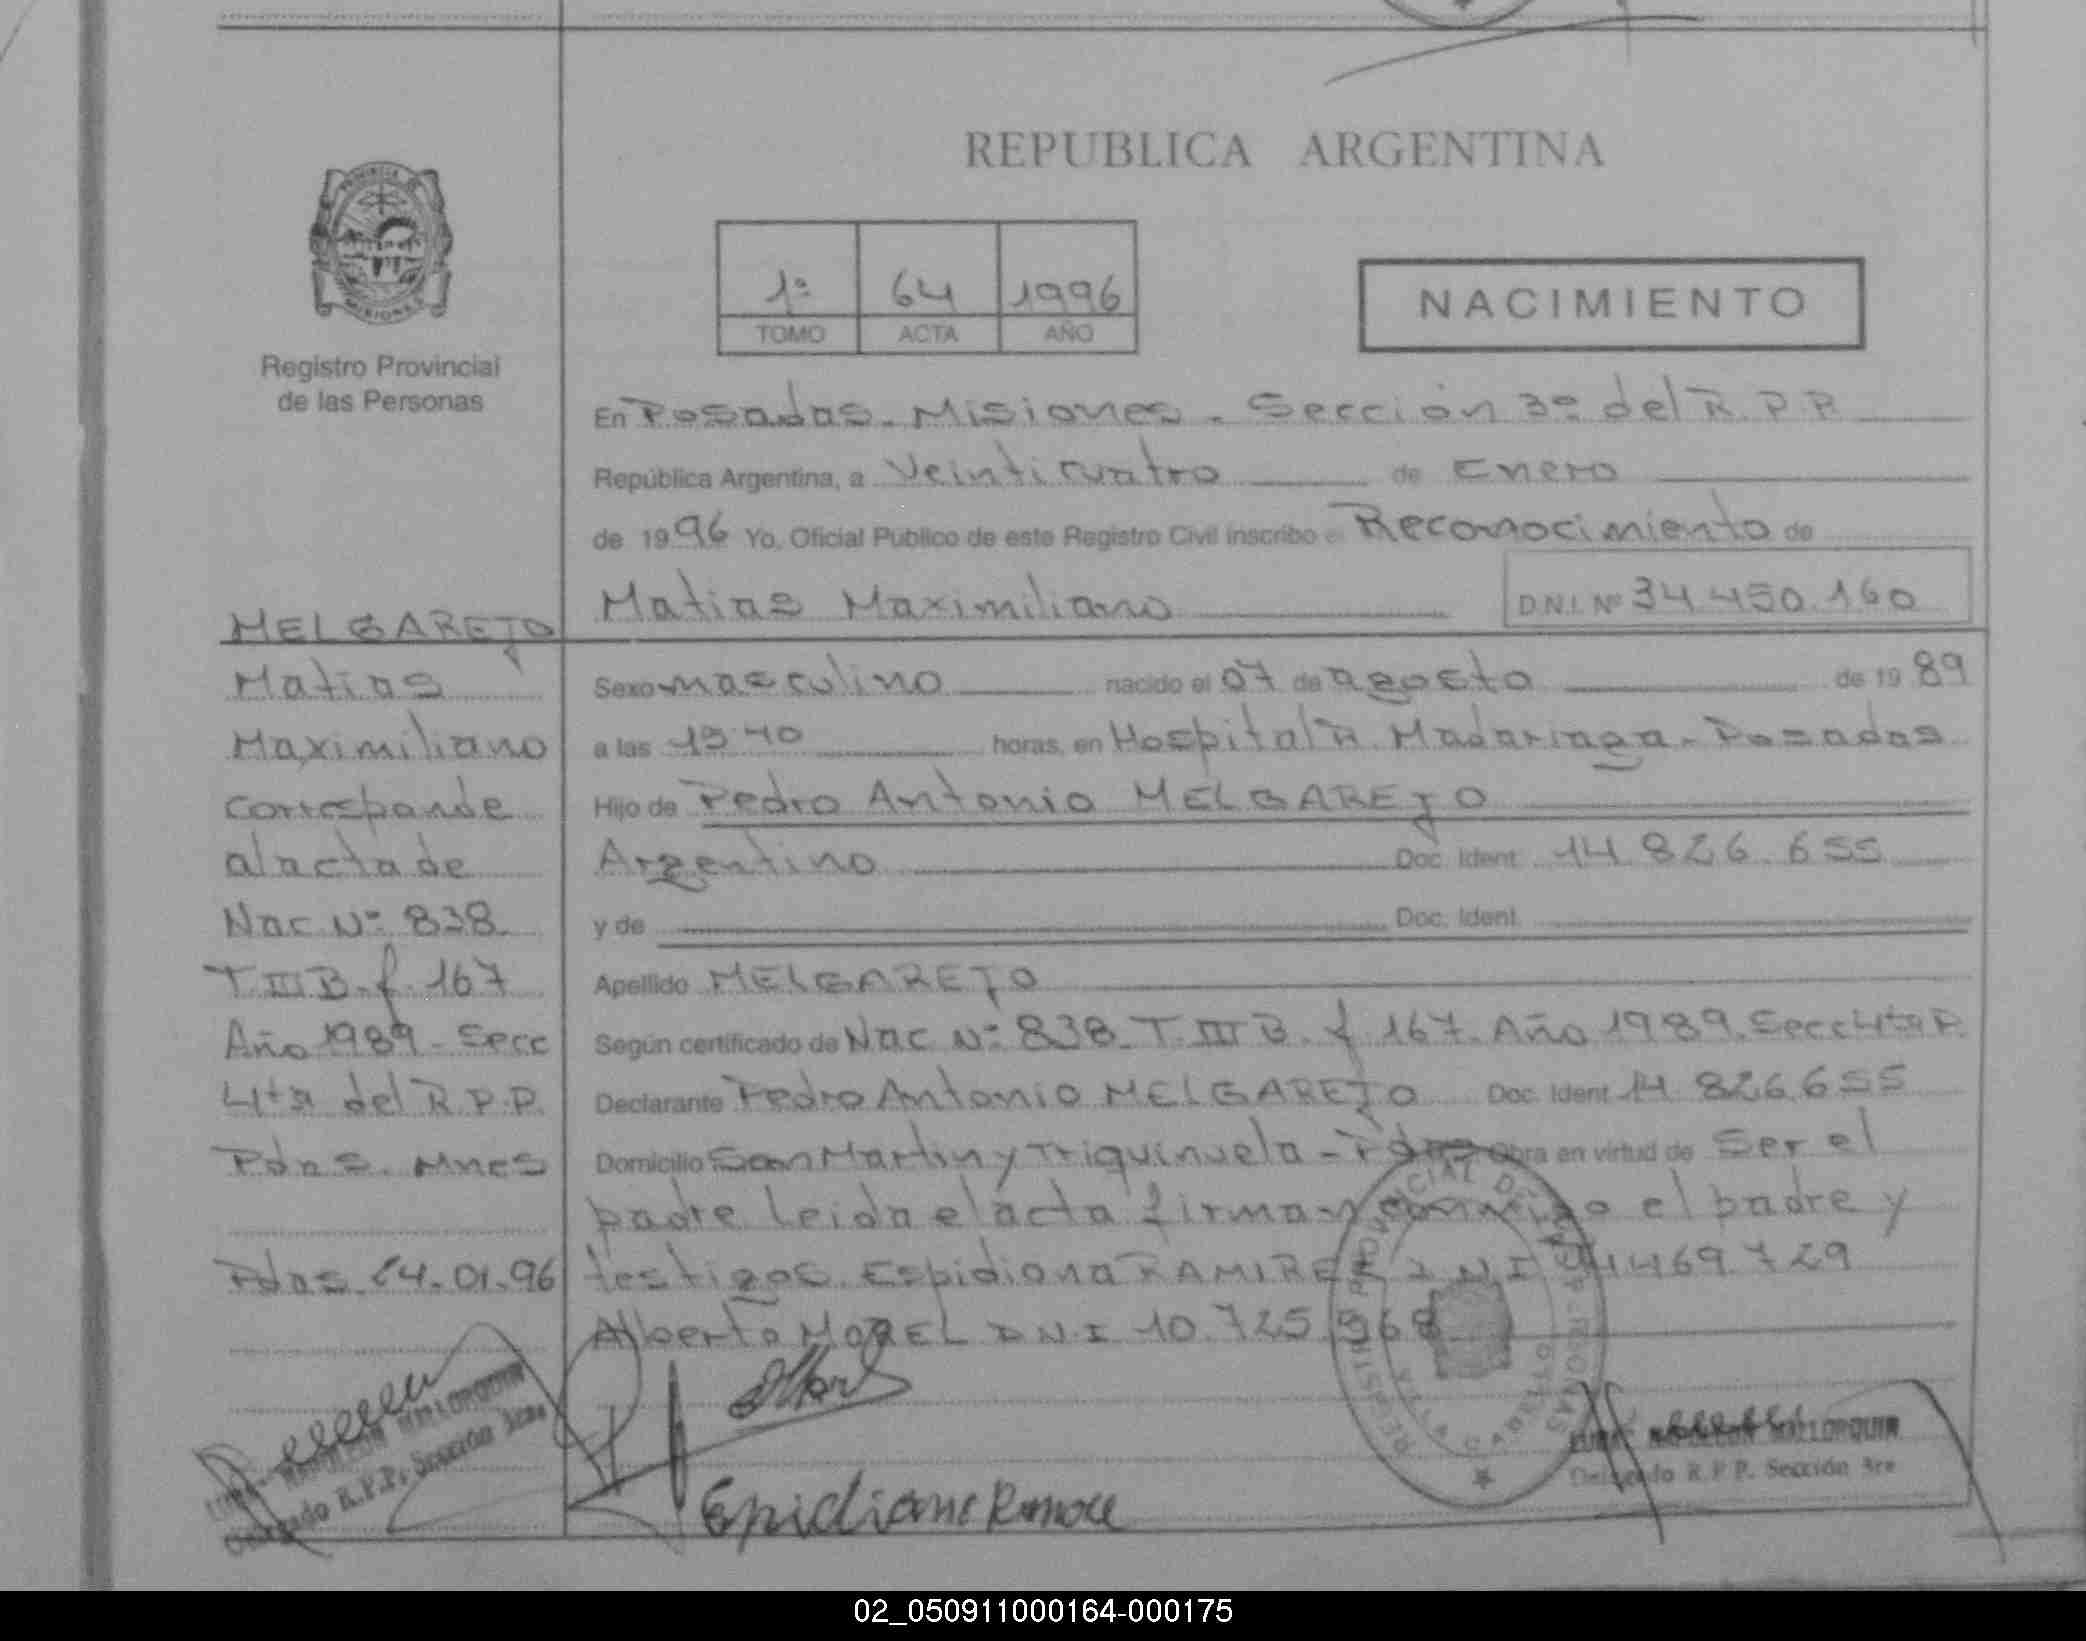 REPUBLICA ARGENTINA
PROVINCIA DE
MISIONES
Registro Provincial
de las Personas
1º 64 1996
TOMO ACTA AÑO
NACIMIENTO
En Posadas - Misiones - Sección 3º del R.P.P.
República Argentina, a Veinticuatro de Enero
de 1996 Yo, Oficial Público de este Registro Civil inscribo el Reconocimiento de
Matias Maximiliano D.N.I. Nº 34.450.160
Sexo masculino nacido el 07 de agosto de 1989
a las 19 40 horas, en Hospital R. Madariaga - Posadas
Hijo de Pedro Antonio MELGAREJO
Argentino Doc. Ident. 14.826.655
y de Doc. Ident.
Apellido MELGAREJO
Según certificado de Nac Nº 838 T. III B. f 167. Año 1989. Secc 4ta P.
Declarante Pedro Antonio MELGAREJO Doc. Ident 14.826.655
Domicilio San Martin y Triquinuela - Obra en virtud de Ser el
padre Leida el acta firman conmigo el padre y
testigos Espidiona RAMIREZ D.N.I 469.729
Alberto MOREL D.N.I 10.725.968
MELGAREJO
Matias
Maximiliano
Corresponde
al acta de
Nac. Nº 838.
T. III B. f. 167
Año 1989 - Secc
4ta del R.P.P.
Pdas. Mnes
Pdas. 24.01.96
NAPOLEON MALLORQUIN
Delegado R.P.P. Sección 3ra
REGISTRO PROVINCIAL DE LAS P. - POSADAS
NAPOLEON MALLORQUIN
Delegado R.P.P. Sección 3ra
02_050911000164-000175